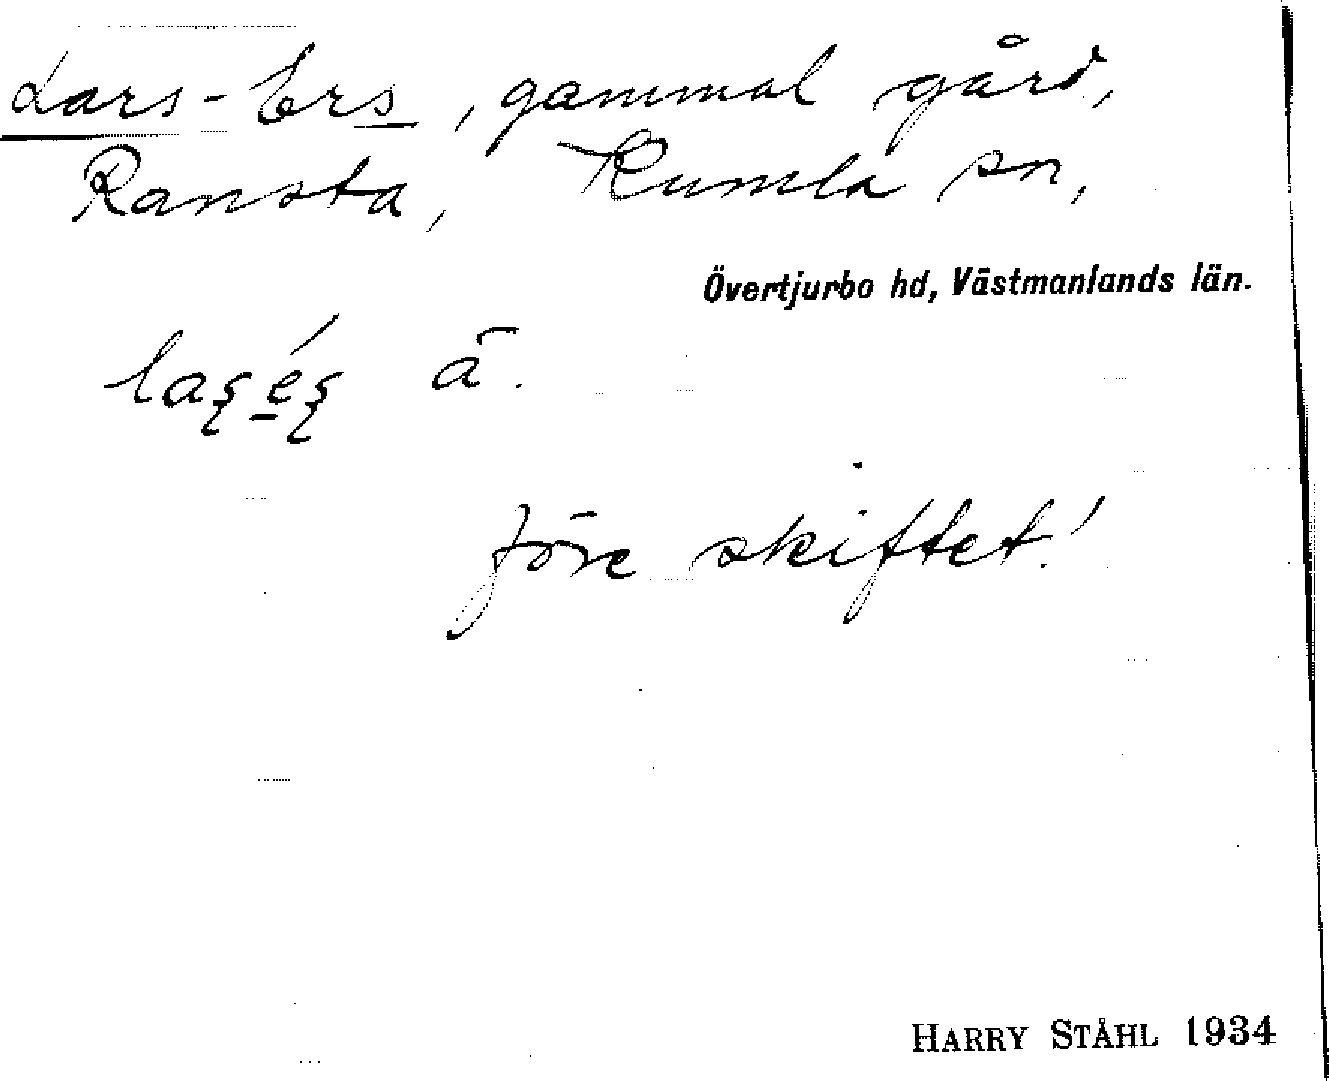 Lars-Ers, gammal gård,
Ransta, Kumla sn,
Övertjurbo hd, Västmanlands län.
ä.
före skiftet!
HARRY STÅHL 1934